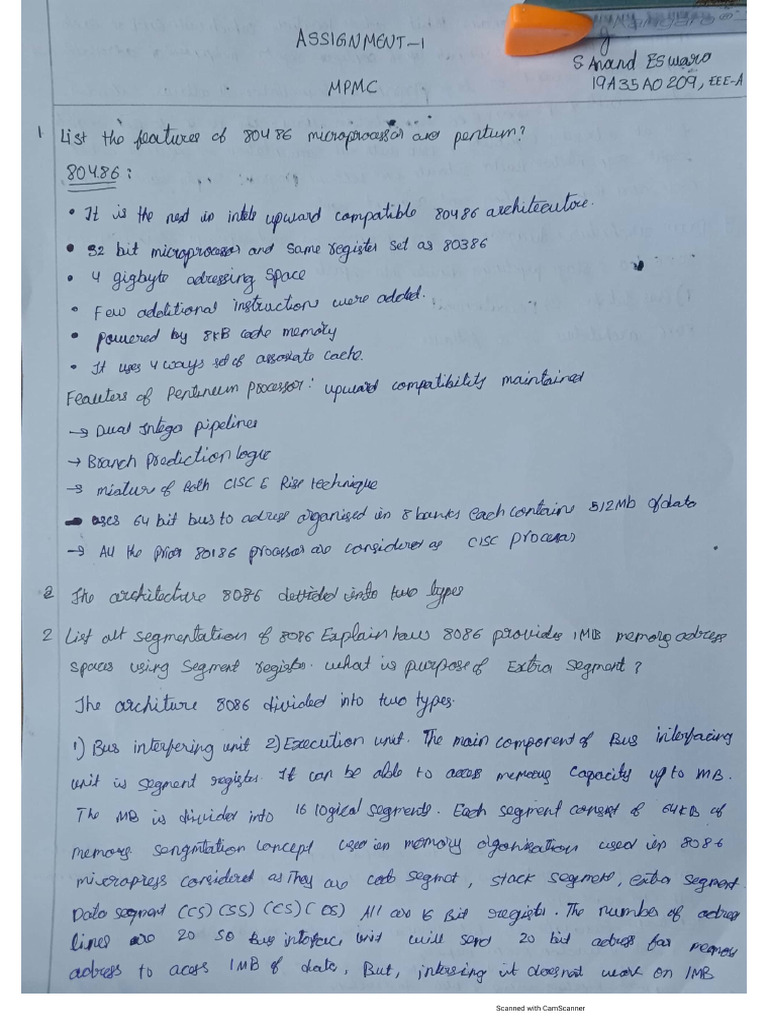 ASSIGNMENT-1
S Anand Eswaro
19A35A0209, EEE-A
MPMC
1 List the features of 80486 microprocessor are pentium?
80486:
• It is the next in intels upward compatible 80486 architecutore.
• 32 bit microprocessor and same register set as 80386
• 4 gigbyte adressing space
• Few additional instructions were added.
• powered by 8kB cache memory
• It uses 4 ways set of assosiate cache.
Feauters of Pentineum Processor: upward compatibility maintained
→ Dual Integer pipelines
→ Branch Prediction logic
→ mixture of Both CISC & Risc technique
- uses 64 bit bus to adress organised in 8 banks each contains 512Mb of data
→ All the prior 80186 processor are considered as CISC Procesas
2 The architecture 8086 devided into two types
2 List all segmentation of 8086 Explain how 8086 provides 1MB memory adress
spaces using Segment register. what is purpose of Extra Segment?
The architure 8086 divided into two types.
1) Bus interfering unit 2) Execution unit. The main component of Bus interfacing
unit is segment register. It can be able to access memory capacity up to MB.
The MB is divider into 16 logical segments. Each segment consist of 64kB of
memory sengmtation concept used in memory organisation used in 8086
micropress considered as They are code segmat, stack segment, extra segment
Data segment (CS) (SS) (ES) (DS) All are 16 Bit register. The number of adress
lines are 20 so bus interface unit will send 20 bit adress for memory
adress to acess 1MB of data, But, it does not work on 1MB
Scanned with CamScanner